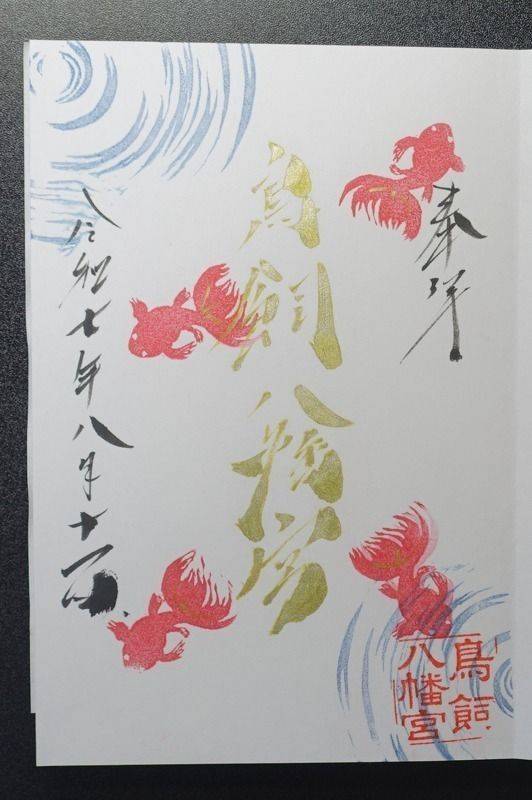 奉拝
鳥飼八幡宮
令和七年八月十一日
鳥飼
八幡宮